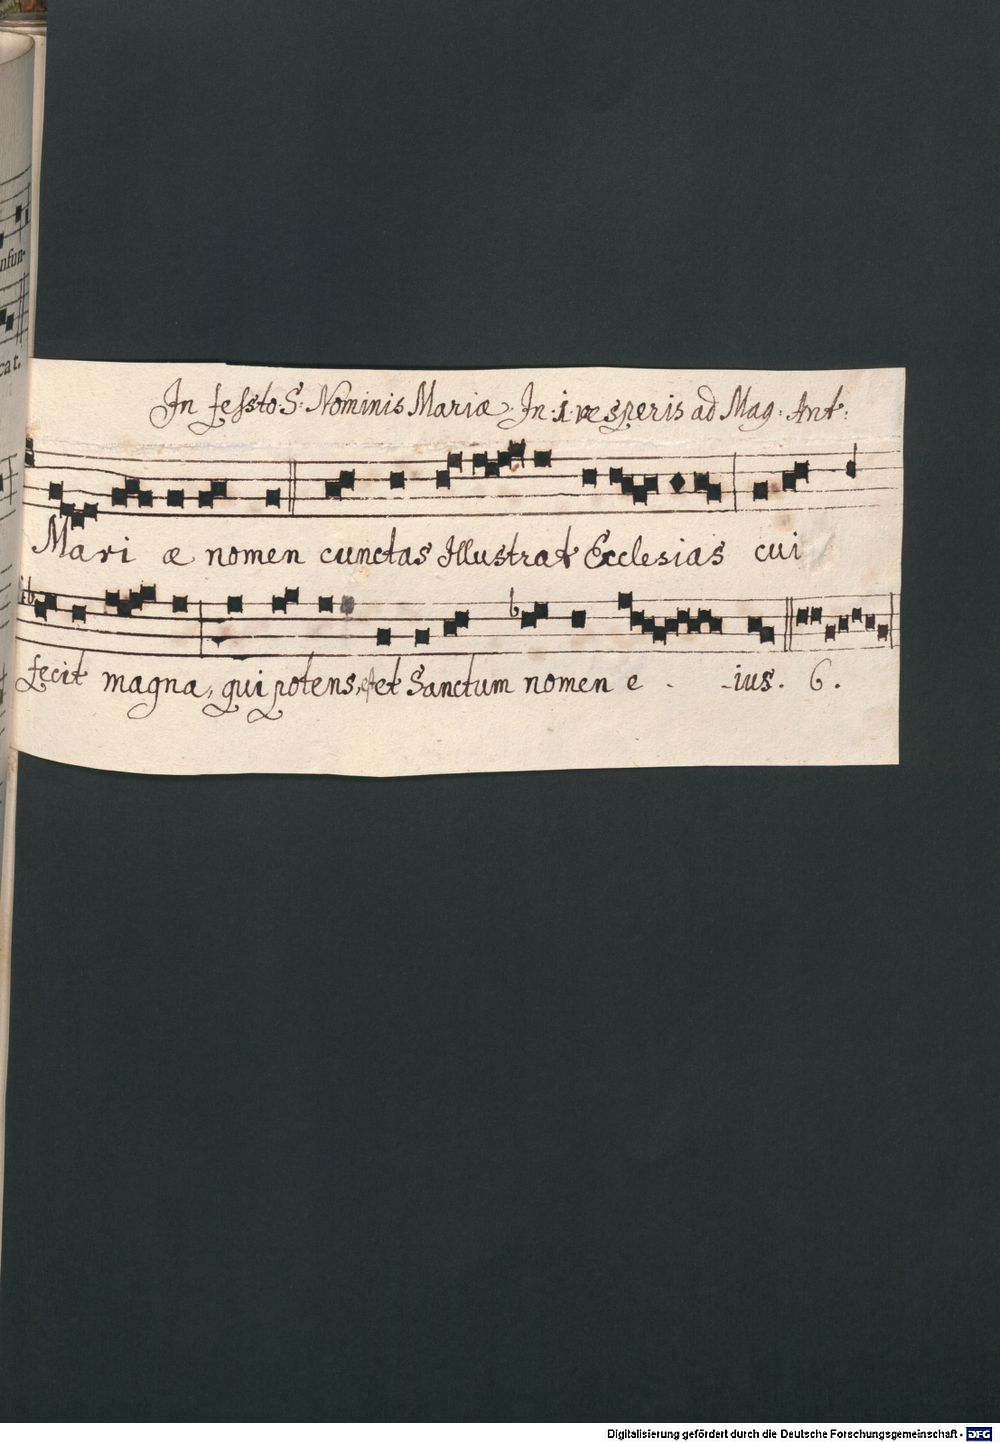 In fessto S. Nominis Mariæ. In .i. vesperis ad Mag: Ant:
nfun-
Mari æ nomen cunctas Illustrat Ecclesias cui
cat.
fecit magna, qui potens, est et Sanctum nomen e - -ius. 6.
Digitalisierung gefördert durch die Deutsche Forschungsgemeinschaft - DFG